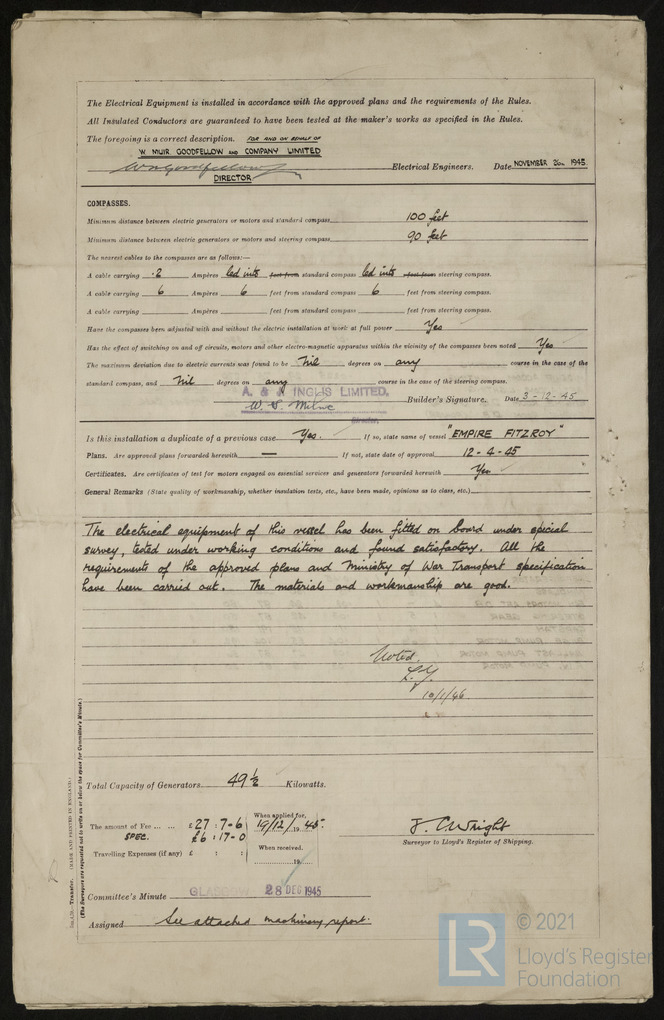 The Electrical Equipment is installed in accordance with the approved plans and the requirements of the Rules.
All Insulated Conductors are guaranteed to have been tested at the maker's works as specified in the Rules.
The foregoing is a correct description. FOR AND ON BEHALF OF
W. MUIR GOODFELLOW AND COMPANY LIMITED
Electrical Engineers. Date NOVEMBER 26TH 1945
DIRECTOR
COMPASSES.
Minimum distance between electric generators or motors and standard compass 100 feet
Minimum distance between electric generators or motors and steering compass 90 feet
The nearest cables to the compasses are as follows:—
A cable carrying .2 Ampères led into feet from standard compass led into feet from steering compass.
A cable carrying 6 Ampères 6 feet from standard compass 6 feet from steering compass.
A cable carrying Ampères feet from standard compass feet from steering compass.
Have the compasses been adjusted with and without the electric installation at work at full power Yes
Has the effect of switching on and off circuits, motors and other electro-magnetic apparatus within the vicinity of the compasses been noted Yes
The maximum deviation due to electric currents was found to be Nil degrees on any course in the case of the
standard compass, and Nil degrees on any course in the case of the steering compass.
A. & J. INGLIS LIMITED,
W. S. Milne Builder's Signature. Date 3-12-45
Director.
Is this installation a duplicate of a previous case Yes. If so, state name of vessel "EMPIRE FITZROY"
Plans. Are approved plans forwarded herewith — If not, state date of approval 12-4-45
Certificates. Are certificates of test for motors engaged on essential services and generators forwarded herewith Yes
General Remarks (State quality of workmanship, whether insulation tests, etc., have been made, opinions as to class, etc.)
The electrical equipment of this vessel has been fitted on board under special
survey, tested under working conditions and found satisfactory. All the
requirements of the approved plans and Ministry of War Transport specification
have been carried out. The materials and workmanship are good.
Noted
10/1/46
Total Capacity of Generators 49½ Kilowatts.
The amount of Fee ... ... £27 : 7-6 When applied for, 19/12/1945.
SPEC. £6 : 17-0
J. C. Wright
Surveyor to Lloyd's Register of Shipping.
Travelling Expenses (if any) £ : : When received. 19
Committee's Minute GLASGOW 28 DEC 1945
Assigned See attached machinery report.
Transfer. (MADE AND PRINTED IN ENGLAND.)
(The Surveyors are requested not to write on or below the space for Committee's Minute.)
LR © 2021
Lloyd's Register
Foundation